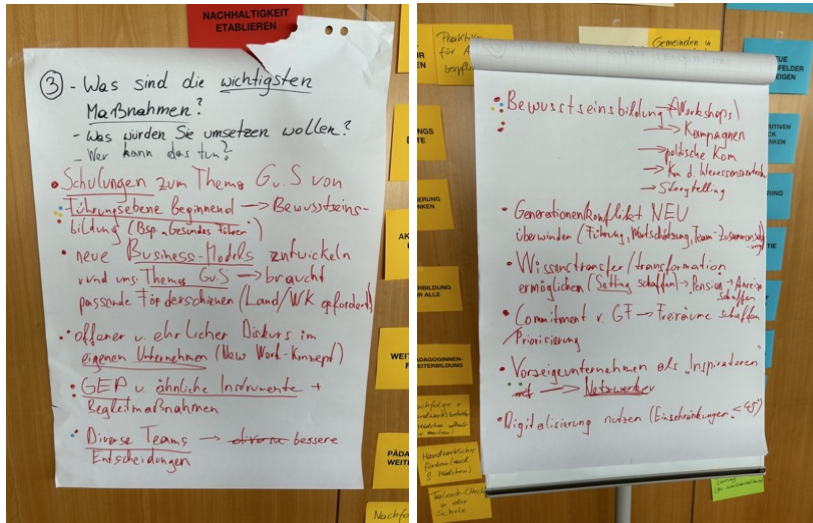 NACHHALTIGKEIT
ETABLIEREN
③ - Was sind die wichtigsten
Maßnahmen?
- Was würden Sie umsetzen wollen?
- Wer kann das tun?
• Schulungen zum Thema G u. S von
Führungsebene beginnend → Bewusstseins-
bildung (Bsp. „Gesundes Führen")
• neue Business-Models entwickeln
rund ums Thema G u. S → braucht
passende Förderschienen (Land/WK gefordert)
• offener u. ehrlicher Diskurs im
eigenen Unternehmen (New Work-Konzept)
• GEP u. ähnliche Instrumente +
Begleitmaßnahmen
• Diverse Teams → diverse bessere
Entscheidungen
WEIT
PÄDA
WEITE
Nachfo
• Bewusstseinsbildung → (Workshops)
→ Kampagnen
→ politische Kom
→ Storytelling
• Generationenkonflikt NEU
überwinden (Führung, Wertschätzung, Team-
• Wissenstransfer/transformation
ermöglichen (Setting schaffen) → Pension → Anreize
schaffen
• Commitment v. GF → Freiräume schaffen
/Priorisierung
• Vorzeigeunternehmen als „Inspiratoren"
→ Netzwerker
• Digitalisierung nutzen (Einschränkungen < 45)
Gemeinden in
EUE
FELDER
EIGEN
SITIVEN
CK
NKEN
RING
TIE
NGS
TE
ERUNG
NKEN
RBILDUNG
R ALLE
ÄDAGOGINNEN-
EITERBILDUNG
Handwerkliches
fördern (auch
Talente-Check
in der
Schule